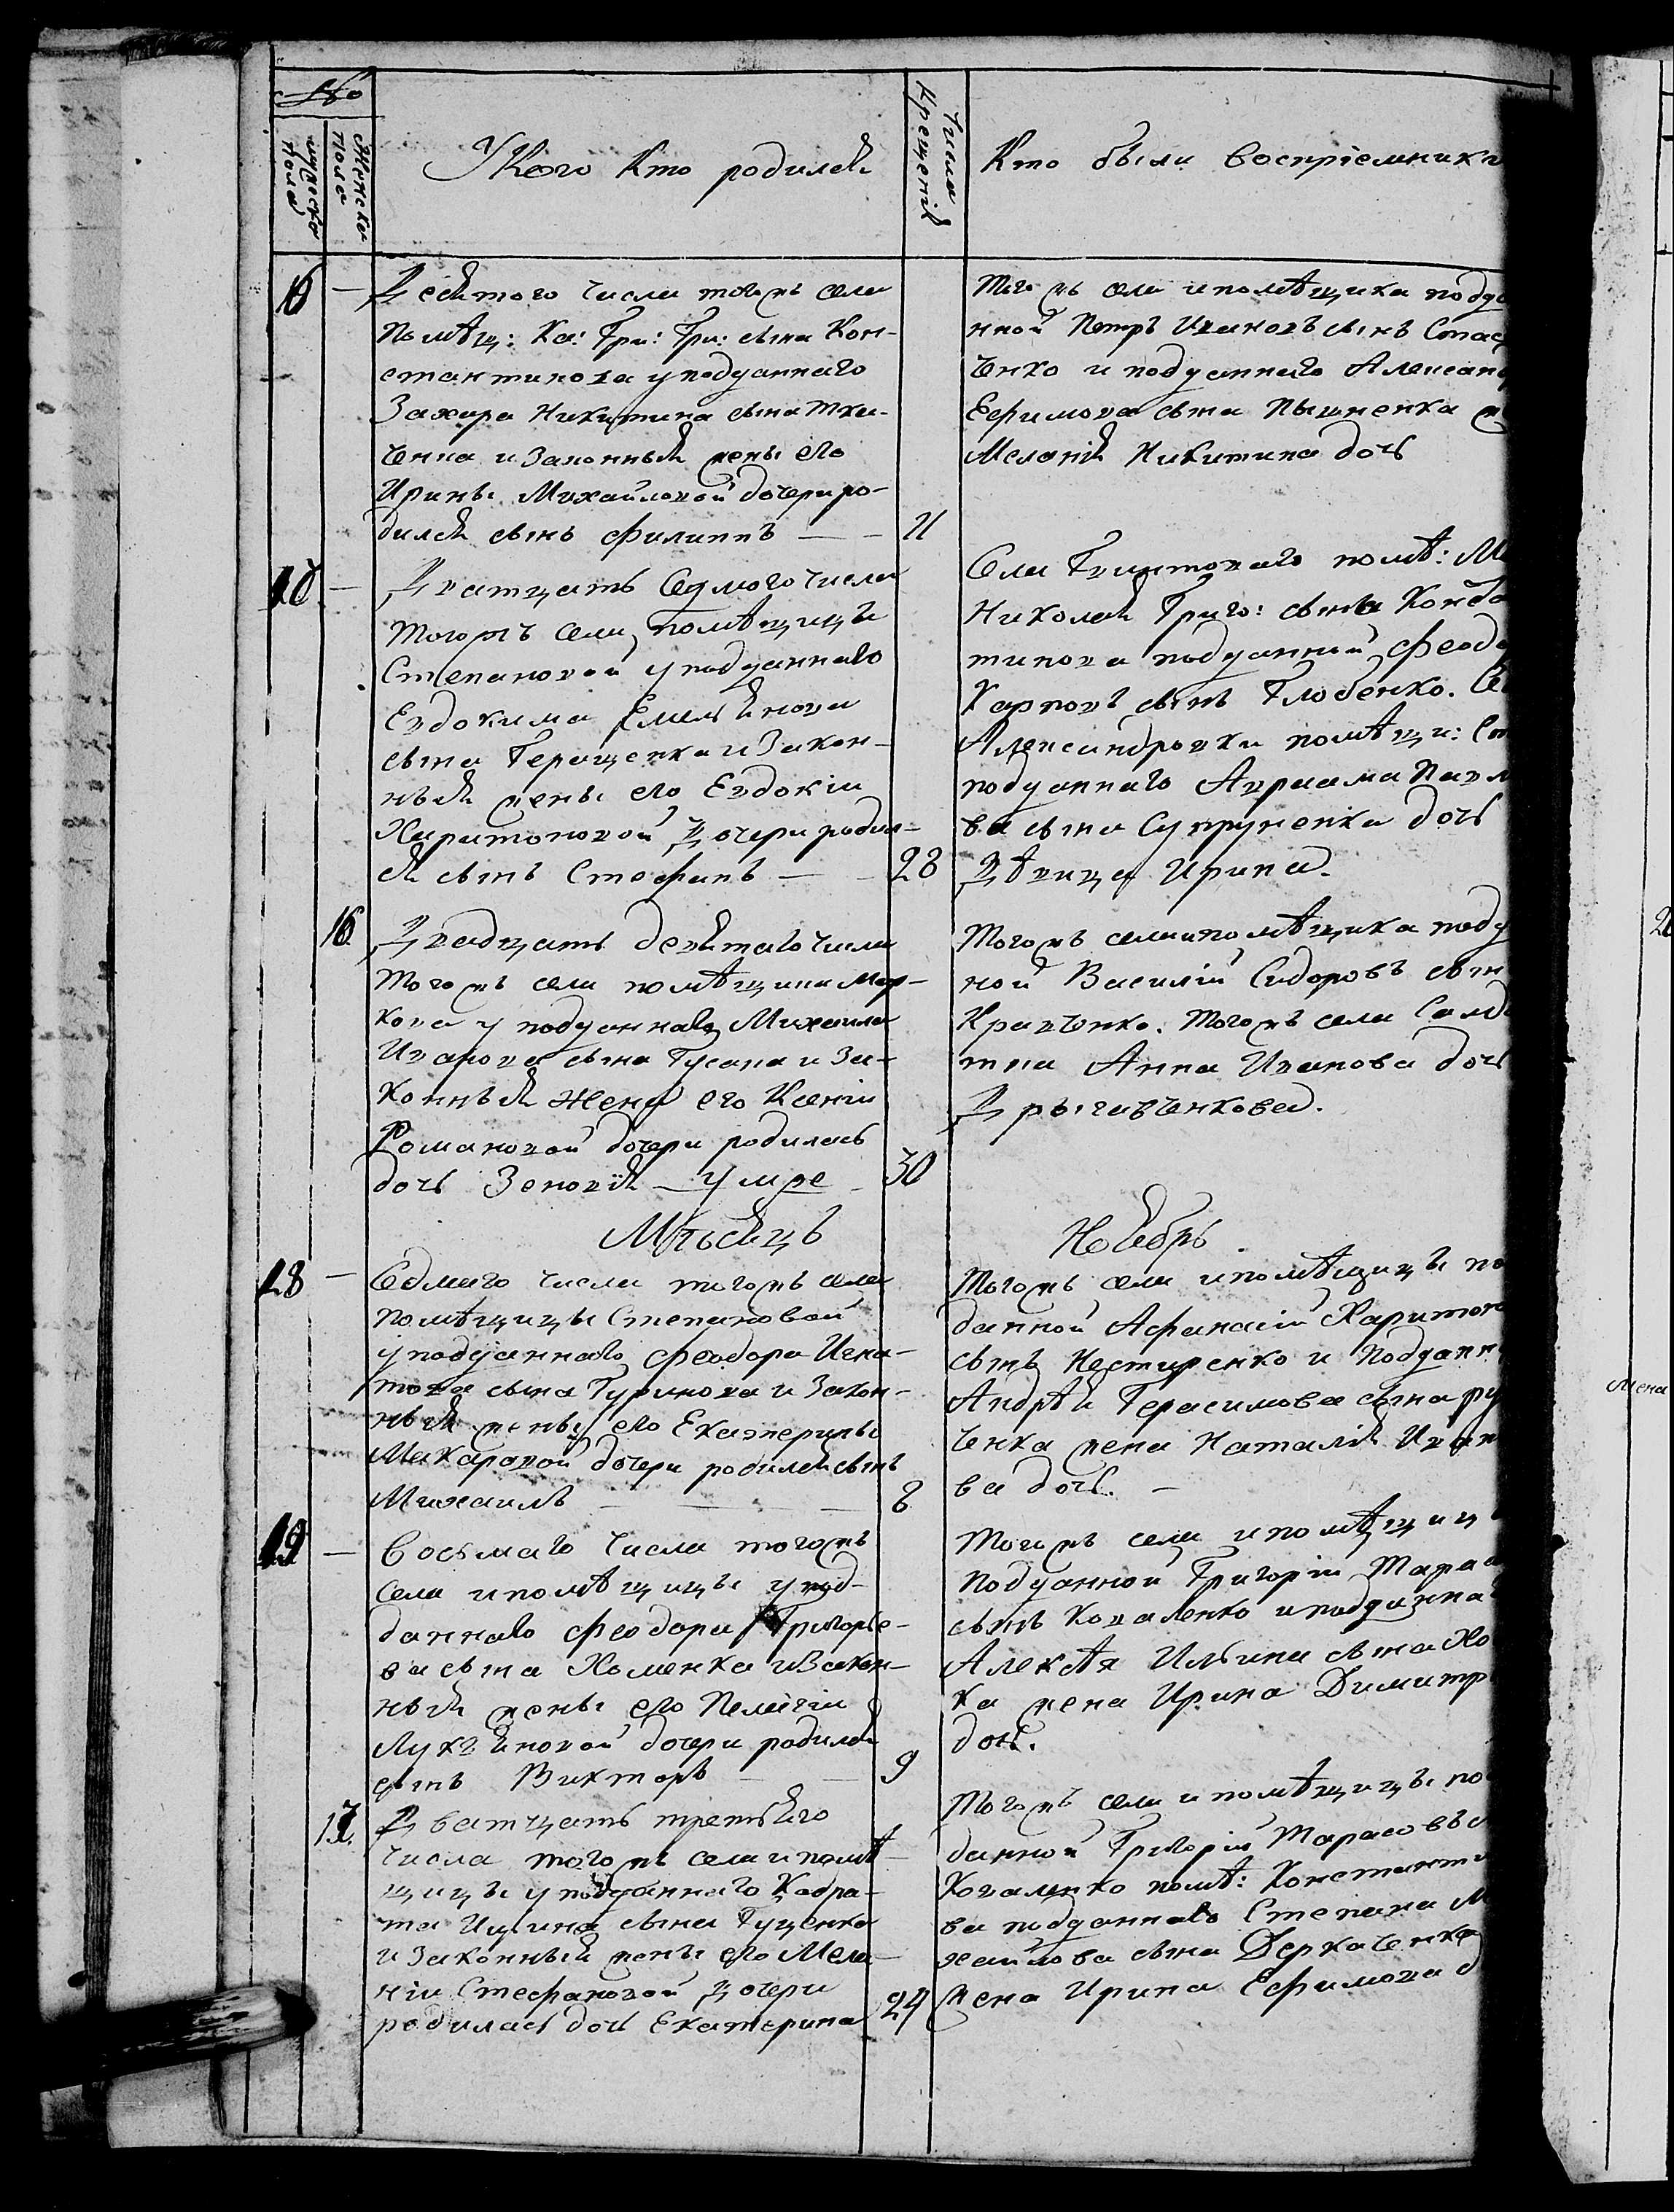 №
Мужеска пола
Женска пола
У Кого Кто родился
Число Крещенія
Кто были Воспріемники
16 —
Десятого числа тогожъ села
Помѣщ: Ка: Гри: Гри: сына Кон-
стантинова у подданнаго
Захара Никитина сына Тка-
ченка и Законныя жены его
Ирины Михайловой дочери ро-
дился сынъ Филиппъ — — 11
Того жъ села и помѣщика подда
нной Петръ Ивановъ сынъ Стас
ченко и подданнаго Александ
Ефимова сына Пышненка ж
Меланія Никитина дочь
—
Дватцать Седмого числа
Тогожъ села помѣщицы
Степановой у подданнаго
Евдокима Емельянова
сына Геращенка и Закон-
ныя жены его Евдокіи
Харитоновой Дочери родил-
ся сынъ Стефанъ — — 28
Села Гвинтоваго помѣ: М
Николая Григо: сына Конс
тинова подданной Феод
Карповъ сынъ Глобенко. Се
Александровки помѣщи: Ст
подданнаго Авраама Павл
ва сына Супруненка дочь
Дѣвица Ирина.
16
Двадцать девятаго числа
Того жъ села помѣщика Мар-
кова у подданнаго Михаила
Иванова сына Гусака и За-
конныя жены его Ксеніи
Романовой дочери родилась
дочь Зеновія — Умре — 30
Тогожъ села и помѣщика подд
ной Василій Сидоровъ сын
Кравченко. Тогожъ села Солд
тка Анна Иванова дочь
Дрыгавченкова.
Мѣсяцъ Ноябрь
18 —
Седмаго числа тогожъ села
Помѣщицы Степановой
у подданнаго Феодора Игна-
това сына Гуринова и Закон-
ныя жены его Екатерины
Макаровой дочери родился сынъ
Михаилъ — — 8
Тогожъ села и помѣщицы по
данной Афанасій Харитон
сынъ Нестеренко и Поддан
Андрѣя Герасимова сына ру
ченка жена Наталія Иван
ва дочь. —
19 —
Восьмаго числа тогожъ
села и помѣщицы у под-
даннаго Феодора Григорье-
ва сына Хоменка и Закон-
ныя жены его Пелагіи
Лукіяновой дочери родился
сынъ Викторъ — — 9
Тогожъ села и помѣщицы
Подданной Григорій Тара
сынъ Коваленко и подданна
Алексѣя Ильина сына Хо
ка жена Ирина Димитр
дочь.
17.
Дватцать третьяго
числа тогожъ села и помѣ-
щицы у подданнаго Кодра-
та сына Гущенка
и Законныя жены его Мела-
ніи Стефановой Дочери
родилась дочь Екатерина 24
Тогожъ села и помѣщицы по
данной Григорій Тарасовъ с
Коваленко помѣ: Константи
ва подданнаго Степана М
хайлова сына Деркаченка
жена Ирина Ефимова д